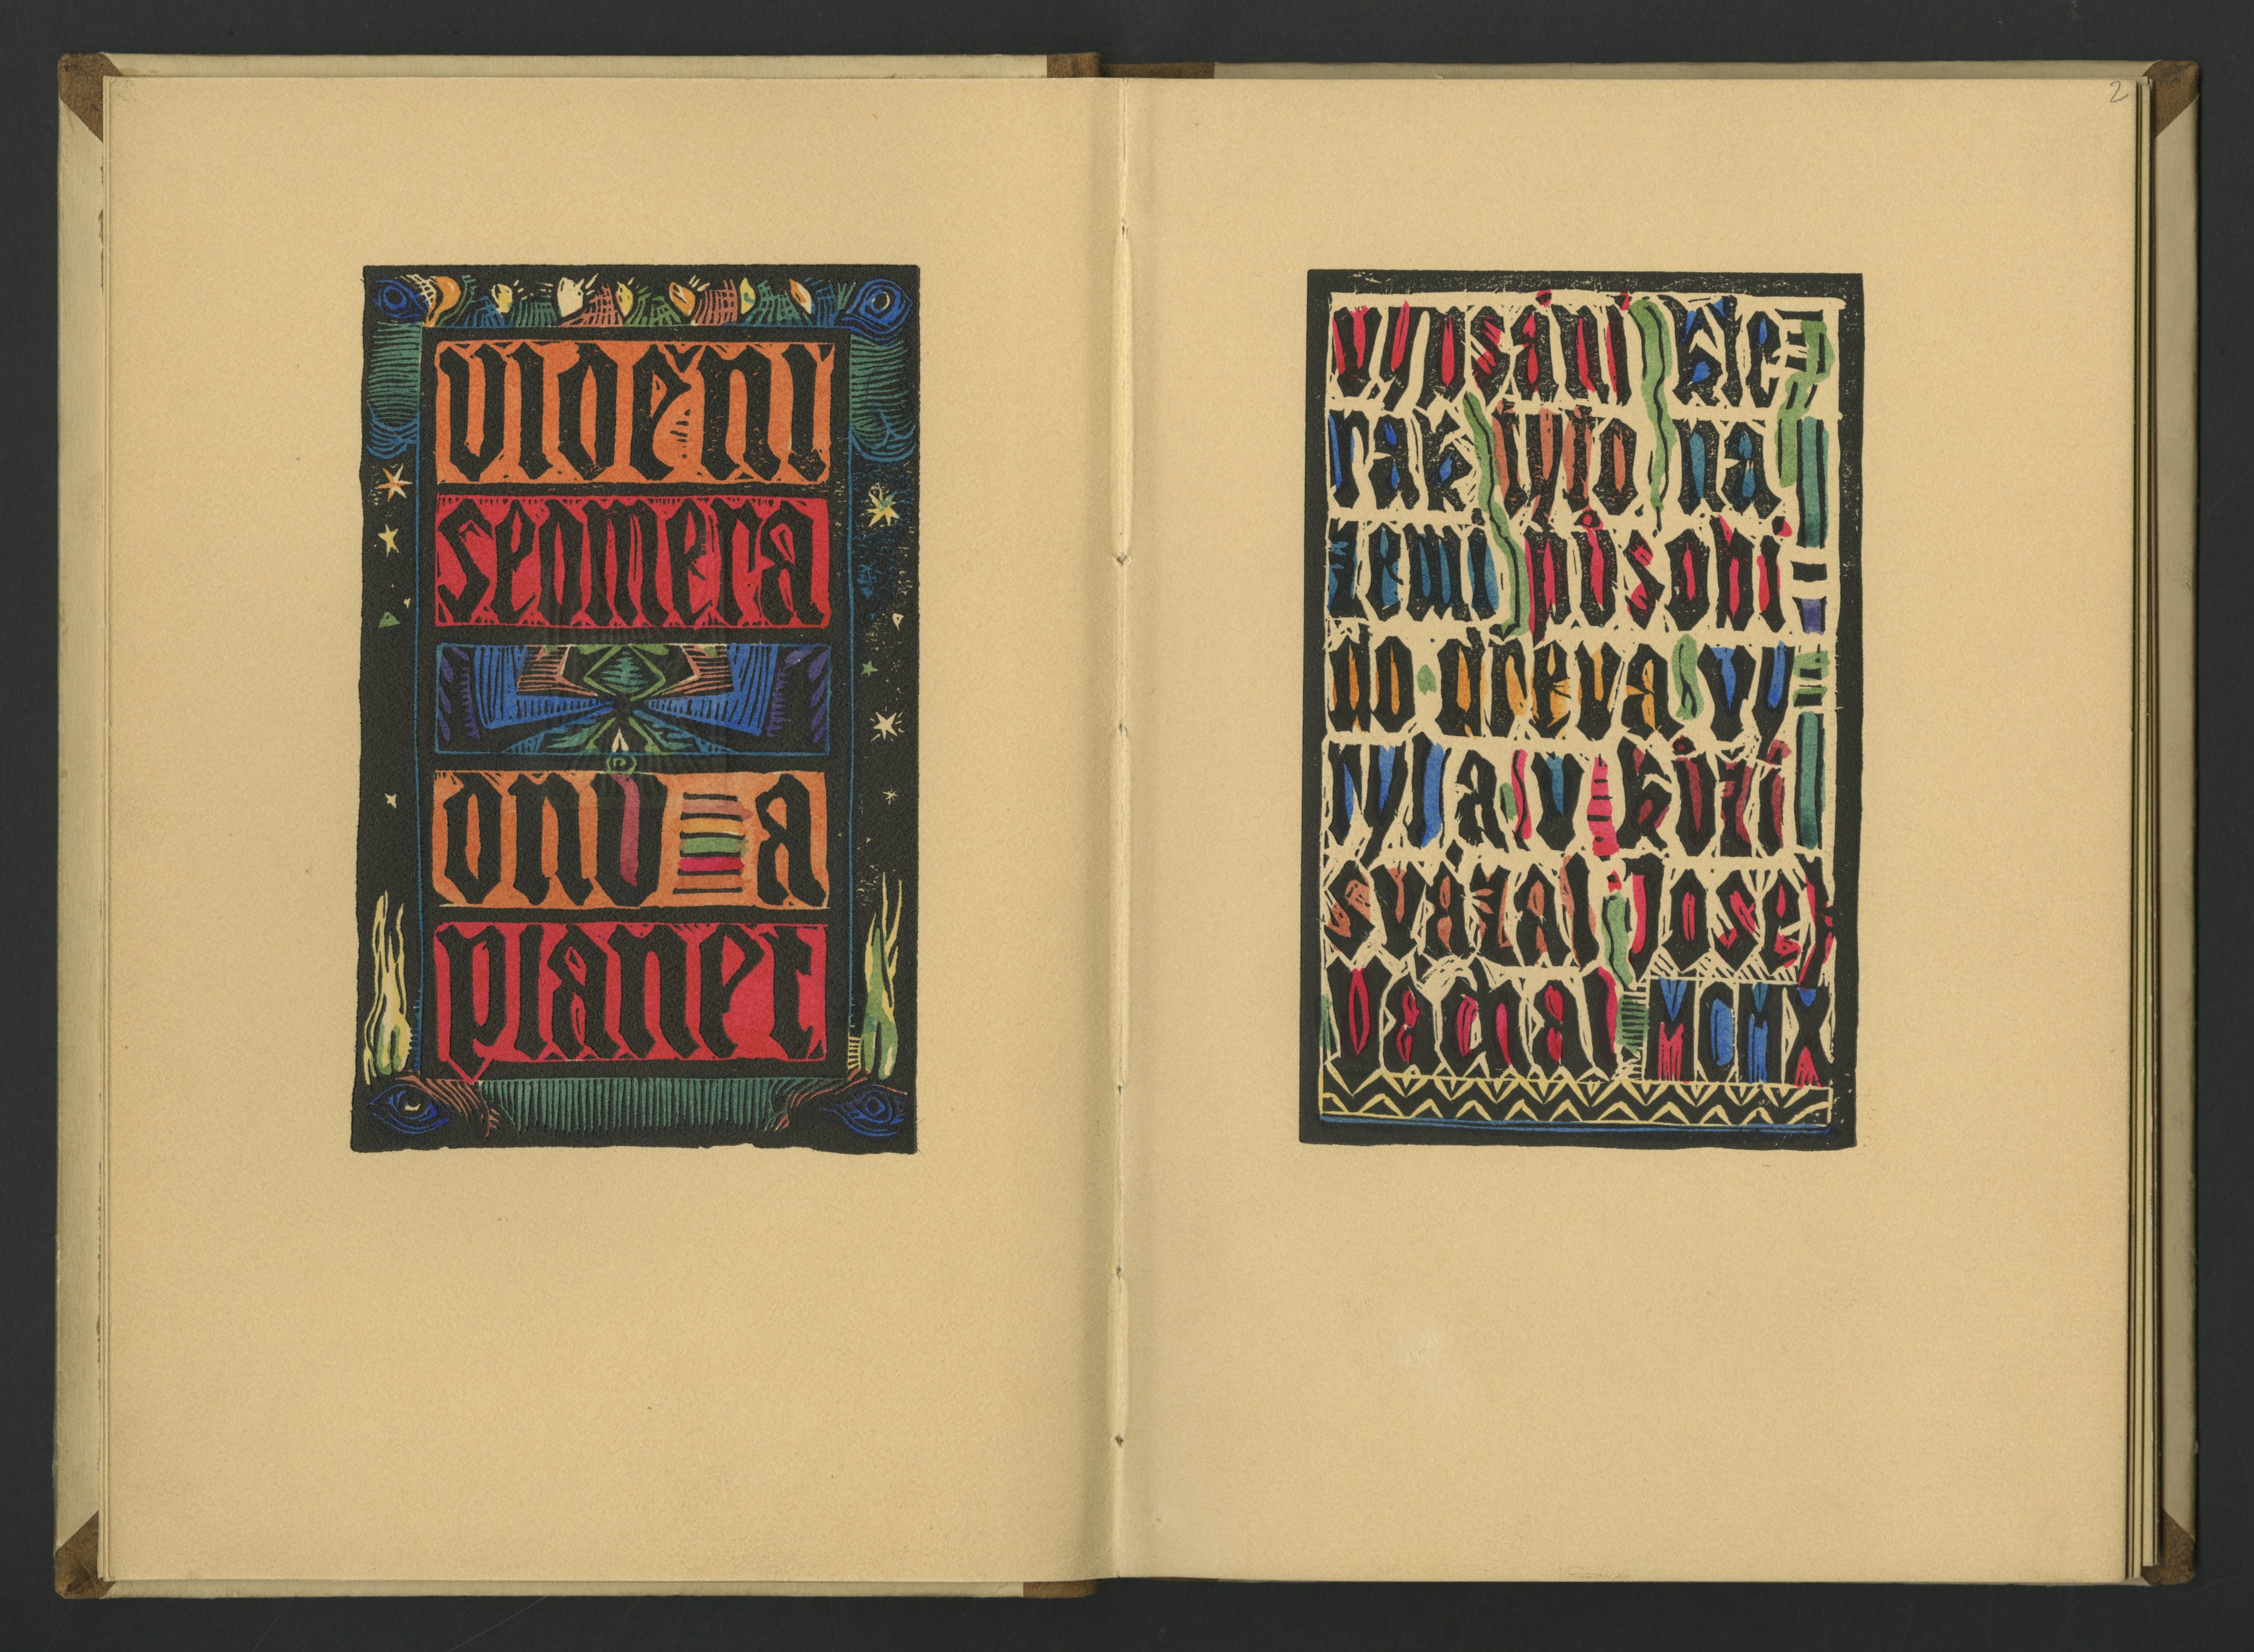 vidění
sedmera
dnů a
planet
2
vypsání kte=
rak tyto na
zemi působí
do dřeva vy
ryl a v kůži
svázal Josef
Váchal MCMX